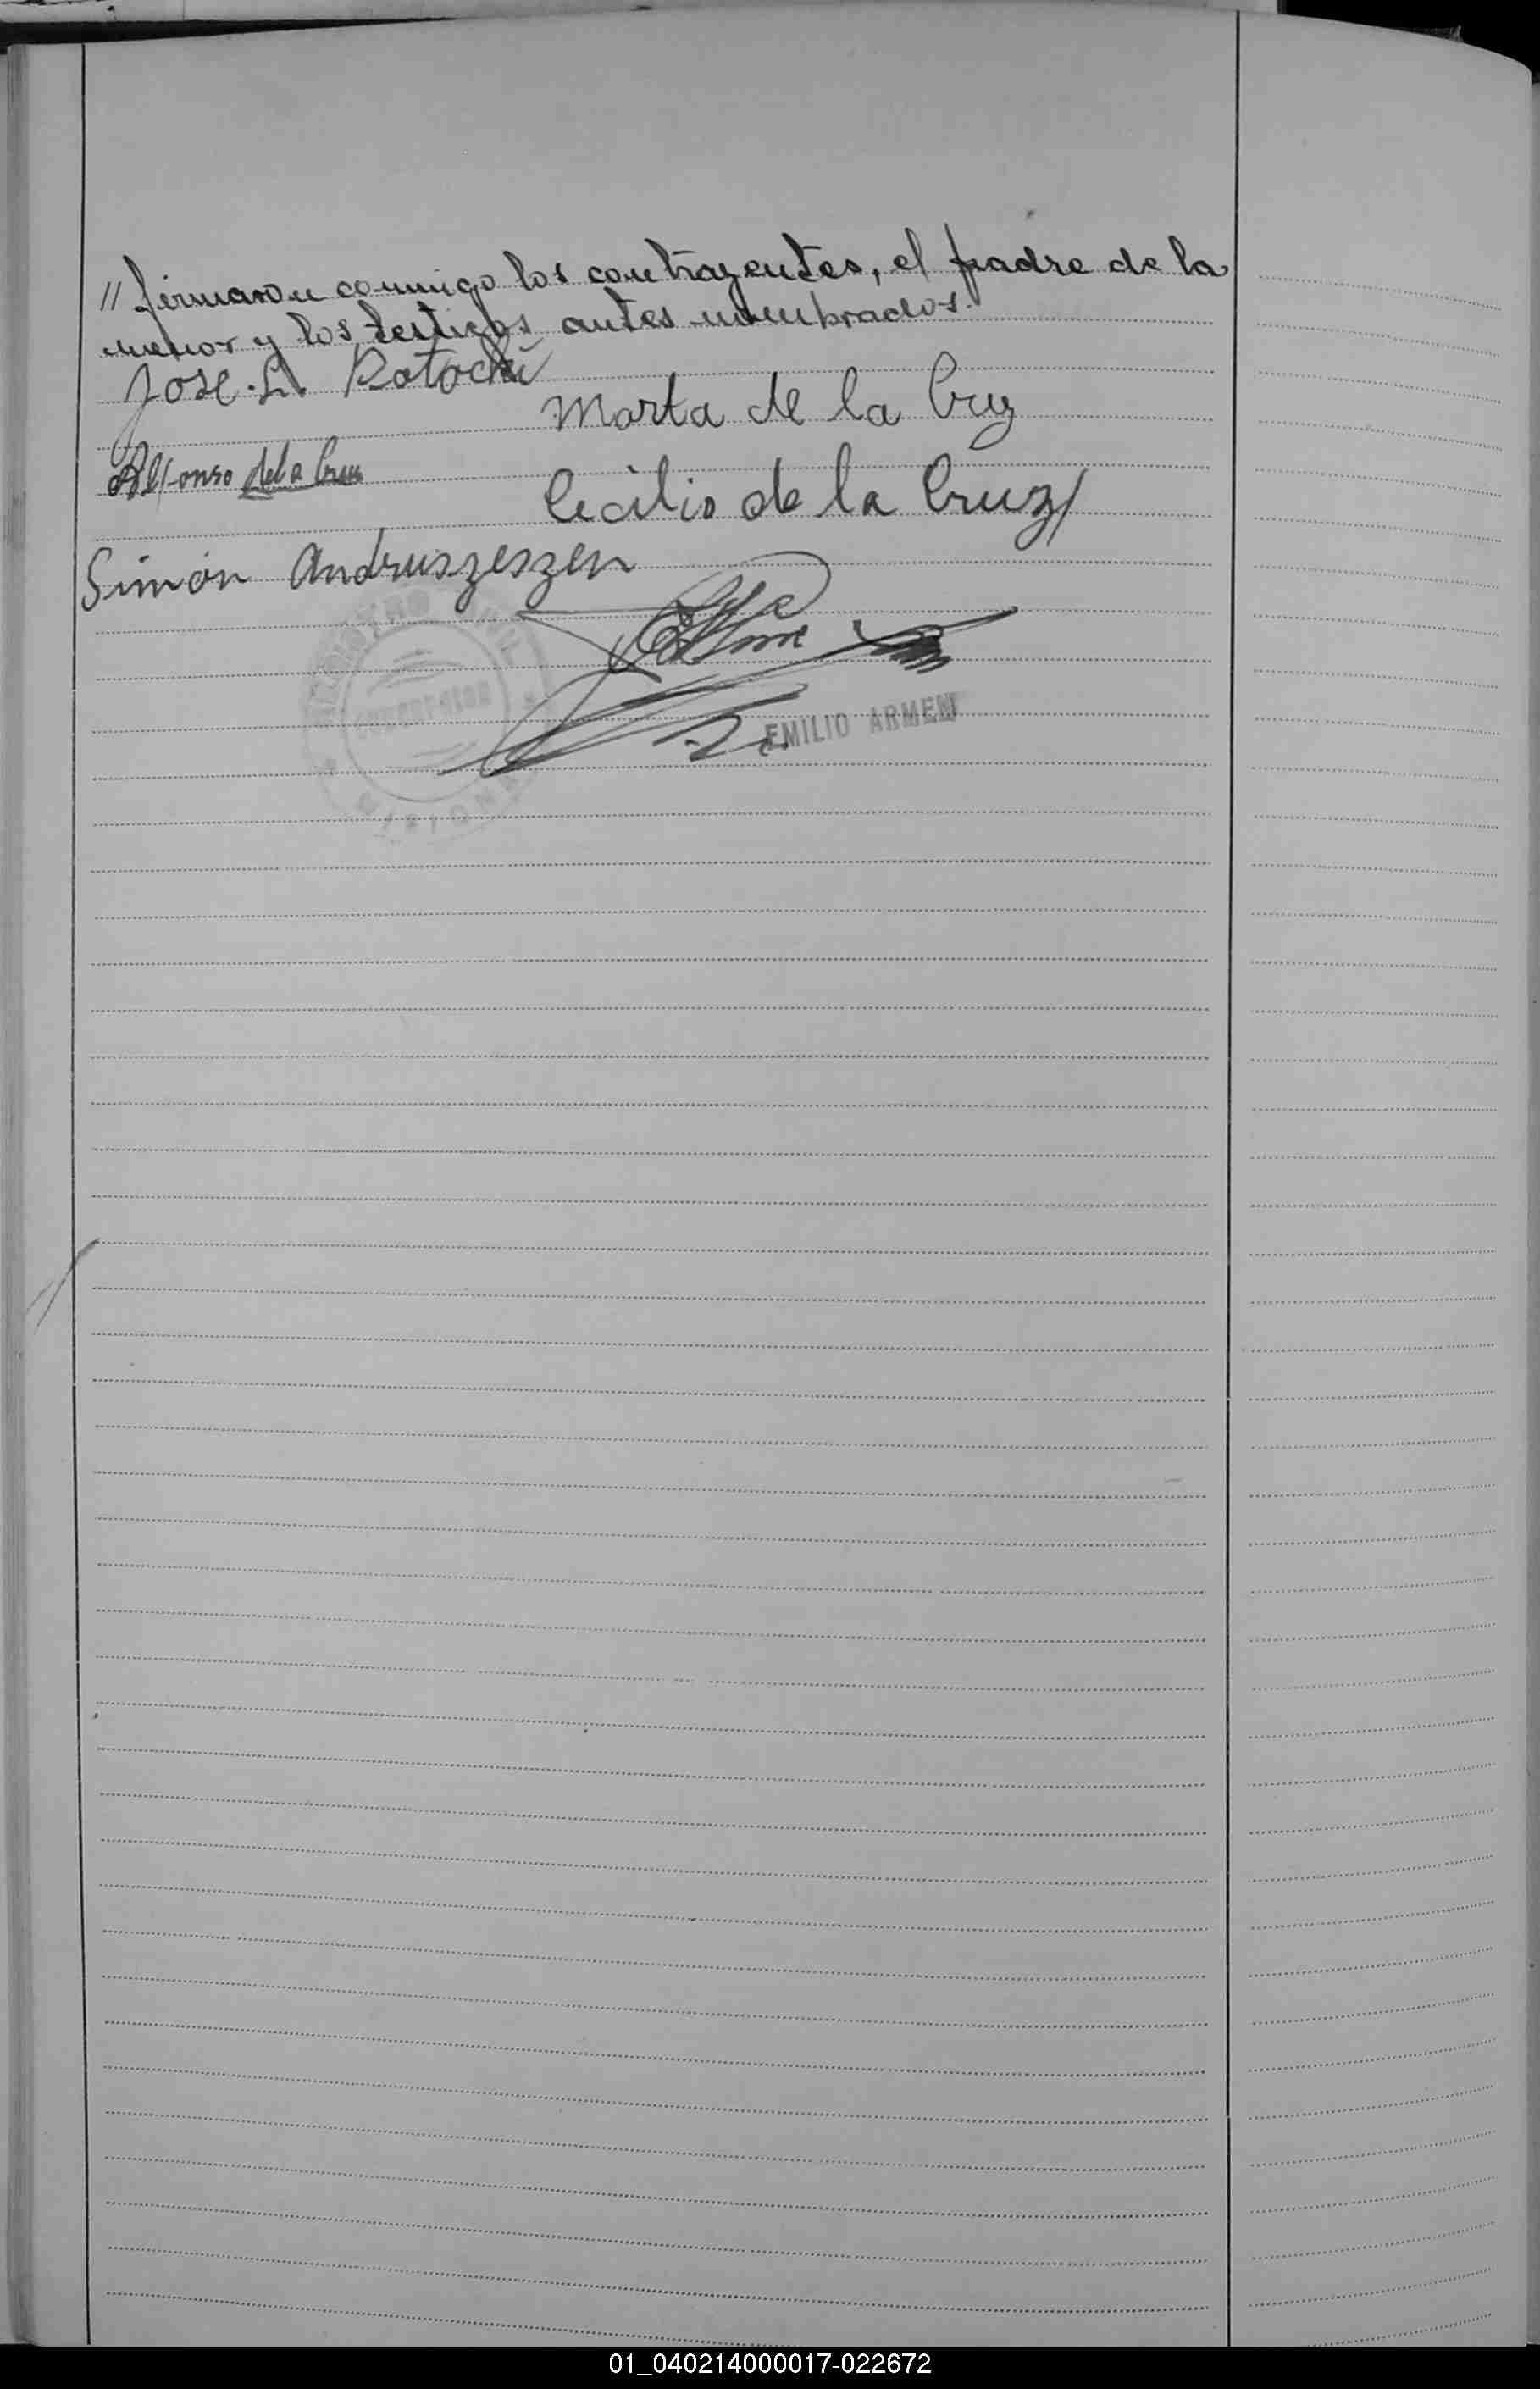 // firmaron conmigo los contrayentes, el padre de la
menor y los testigos antes nombrados.
Jose. L.
Marta de la Cruz
Alfonso de la Cruz
Cecilio de la Cruz
Simón Andruszeszen
REGISTRO CIVIL
CONCEPCION
MISIONES
EMILIO ARMEN
01_040214000017-022672